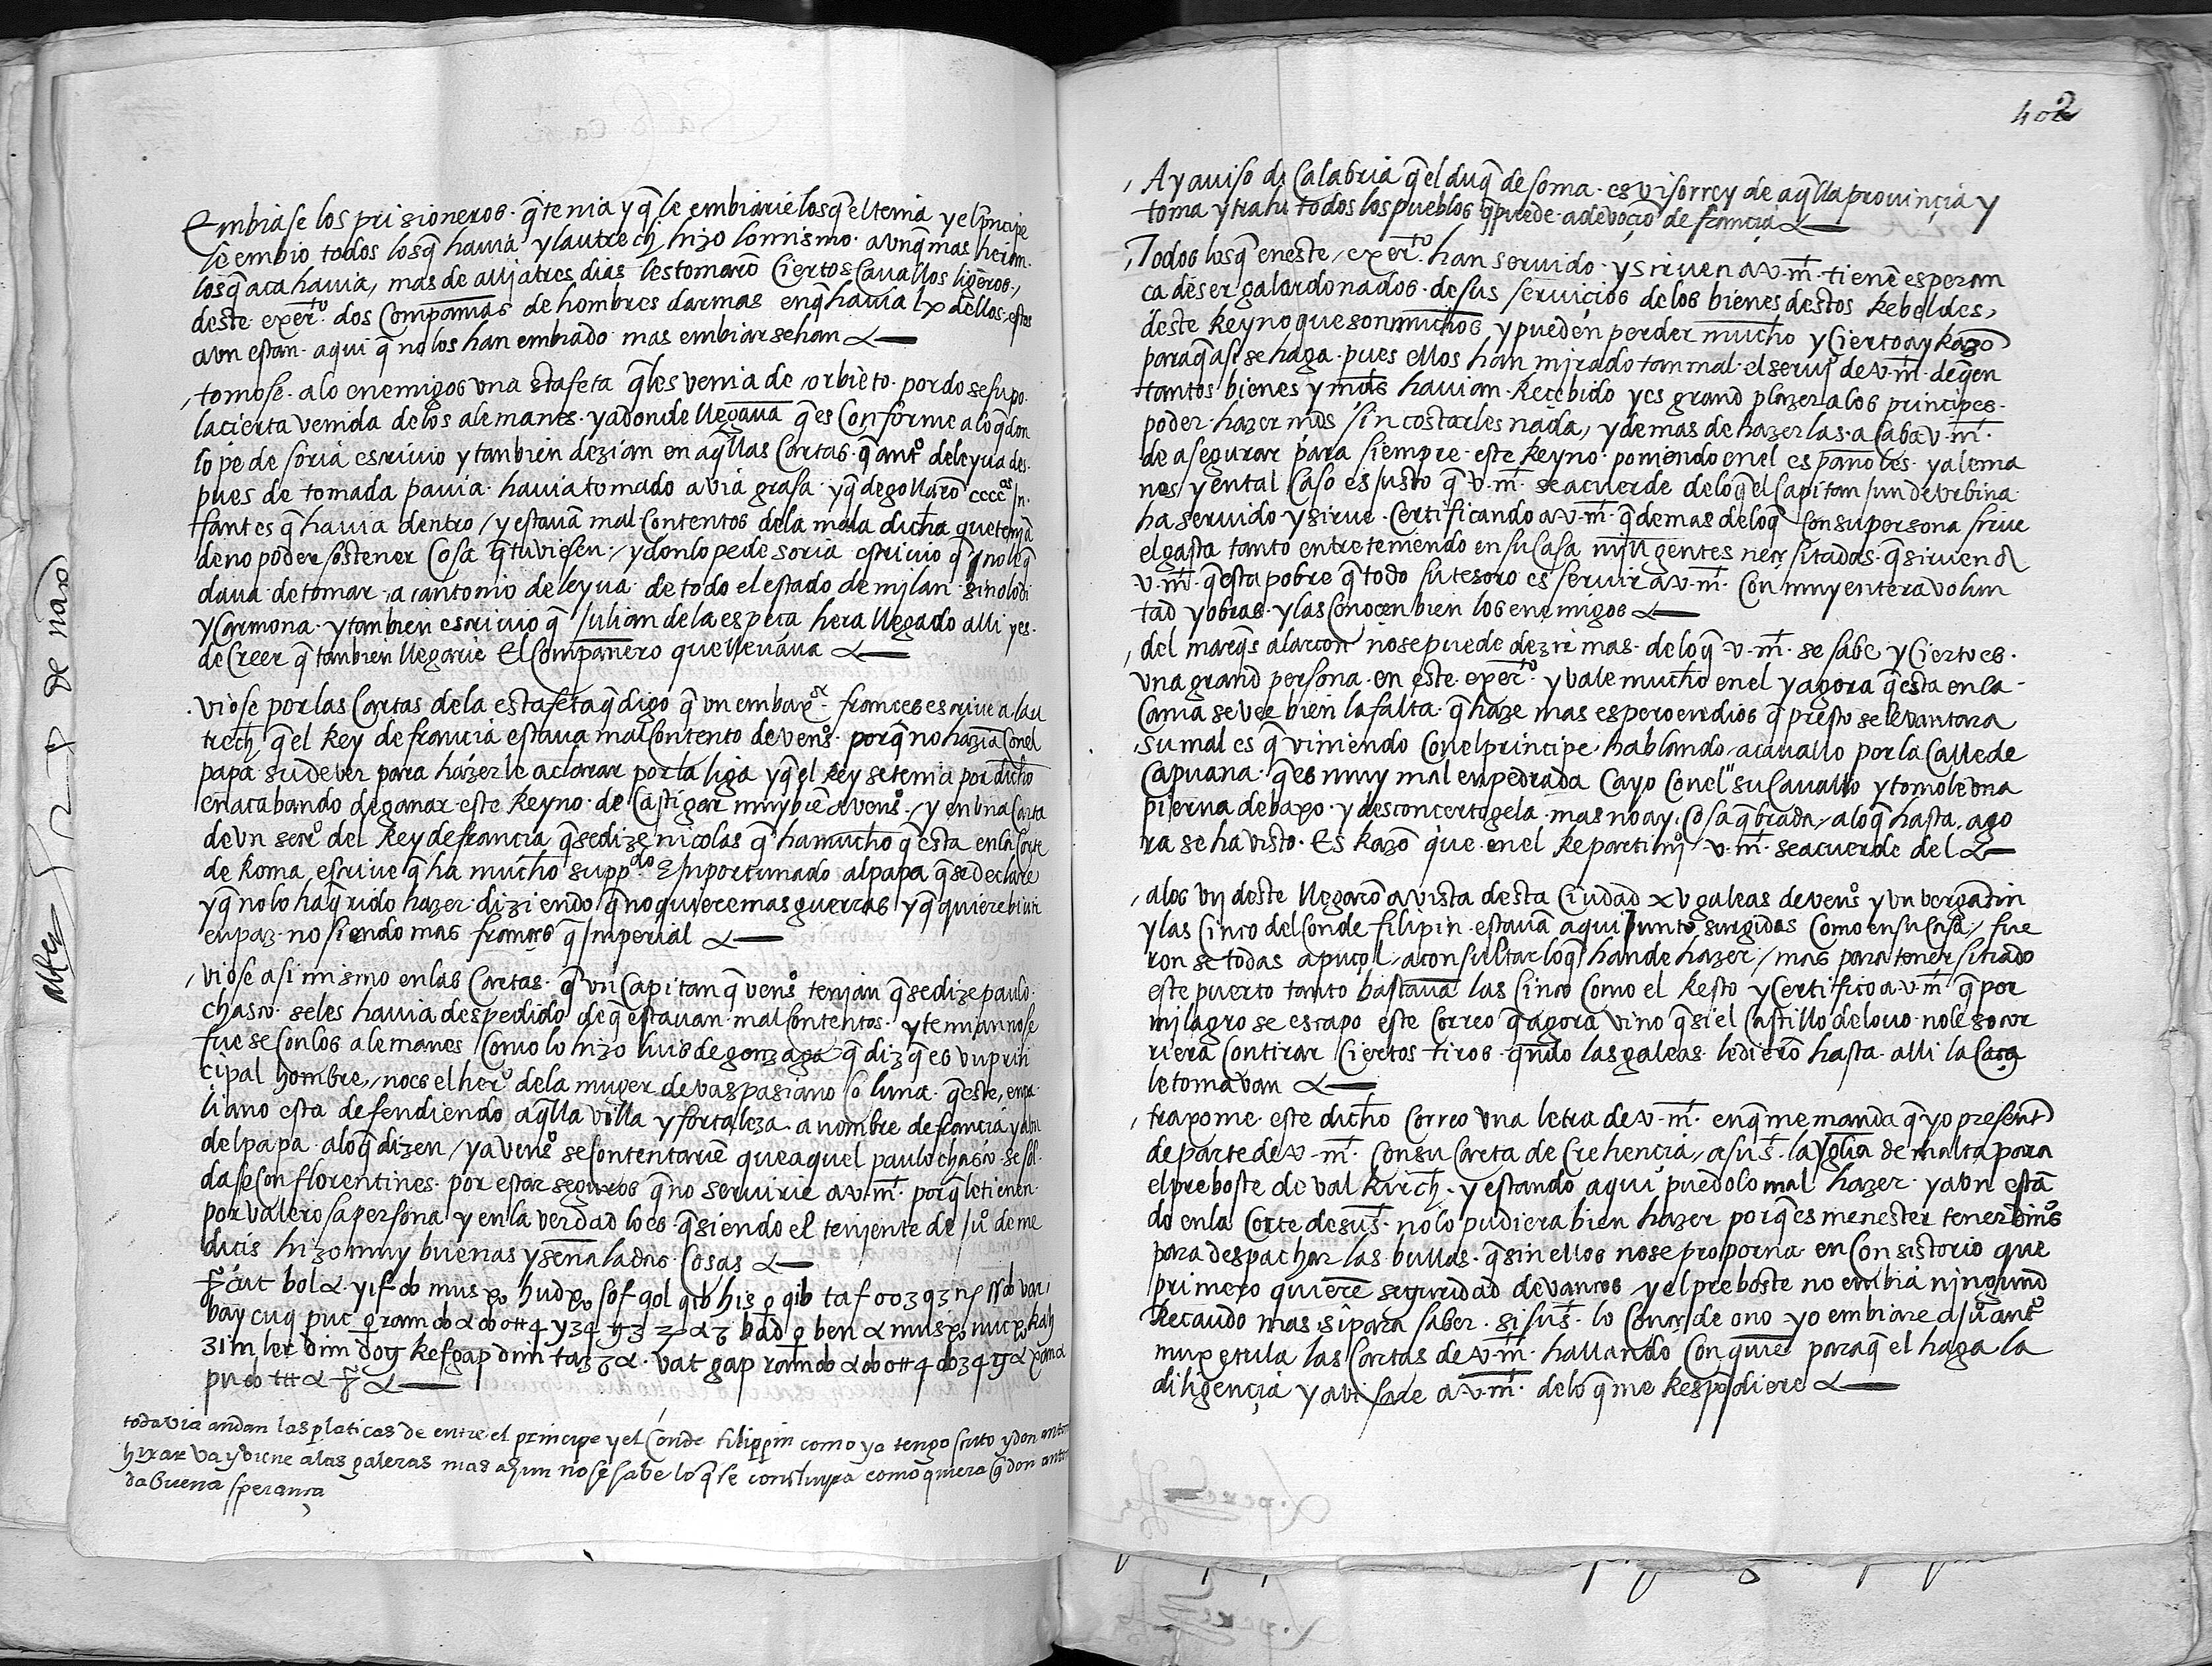 Embiase los prisioneros. q̃ tenia y q̃ le embiarie los q̃ el tenia y el principe
le embio todos los q̃ havia y lautrech hizo lo mismo. avnq̃ mas heran
los q̃ aca havia, mas de alli a tres dias les tomarõ Ciertos Cavallos ligeros,
deste exerto. dos Compañias de hombres darmas en q̃ havia lx dellos, estos
avn estan. aqui q̃ no los han embiado mas embiar se han
tomose. a lo enemigos vna stafeta q̃ les venia de orbieto. por do se supo
la cierta venida delos alemanes. y adonde llegava q̃ es Conforme a lo q̃ don
lope de soria escrivio y tanbien dezian en aq̃llas Cartas. q̃ anto deleyva des
pues de tomada pavia. havia tomado a viagrasa. y q̃ degollarõ cccc os yn
ffantes q̃ havia dentro / y estavã mal Contentos dela mala dicha que teniã
de no poder sostener Cosa q̃ tuviesen. / y don lope de soria escrivio q̃ no le q̃
dava de tomar a antonio de leyva. de todo el estado de mylan. sino lodi
y Carmona. y tambien escrivio q̃ Julian dela espeça hera llegado alli y es.
de Creer q̃ tambien llegarie El Compañero que llevava
viose por las Cartas dela estafeta q̃ digo q̃ vn embaxor. frances escrive a lau
trech q̃ el Rey de francia estava mal Contento de venos. porq̃ no hazia Con el
papa su dever para hazerle aclarar por la liga y q̃ el Rey se tenia por dicho
en acabando de ganar este Reyno. de Castigar muy biẽ a venos. / y en vna Carta
de vn sero del Rey de francia q̃ se dize nicolas q̃ ha mucho q̃ esta en la Corte
de Roma escrive q̃ ha mucho suppdo. E ynportunado al papa q̃ se declare
y q̃ no lo ha q̃rido hazer. diziendo q̃ no quiere mas guerras y q̃ quiere bivir
en paz. no siendo mas frances q̃ ymperial
viose asi mismo en las Cartas. q̃ vn Capitan q̃ venos tenian q̃ se dize paulo
chasco. se les havia despedido de q̃ estavan. mal Contentos. y temian no se
fuese Con los alemanes Como lo hizo luis de gonzaga q̃ diz q̃ es vn prin
cipal hombre, no es el hero dela muger de vaspasiano Coluna. q̃ este, en pa
liano esta defendiendo aq̃lla villa y fortaleza. a nombre de francia y avn
del papa. a lo q̃ dizen / y a venos se Contentariẽ que aquel paulo chasco. se sol
dase Con florentines. por estar seguros q̃ no servirie a v. mt. porq̃ le tienen.
por valerosa persona y en la verdad lo es. q̃ siendo el teniente de Juo de me
dicis hizo muy buenas y señaladas. Cosas
todavia andan las platicas de entre el principe y el Conde filippin como ya tengo scrito y don anton
hixar va y viene a las galeras mas ahun no se sabe lo q̃ se concluyra como quiera q̃ don anton
da buena sperança
402
Ay aviso de Calabria q̃ el duq̃ de soma. es visorrey de aq̃lla provinçia y
toma y trahe todos los pueblos q̃ puede. a devoçiõ de françia
Todos los q̃ en este exerto. han servido. y sirven a v. mt. tienẽ esperan
ca de ser galardonados. de sus serviçios delos bienes destos Rebeldes,
deste Reyno que son muchos y pueden perder mucho y Cierto ay Razõ
para q̃ asi se haga. pues ellos han mirado tan mal. el servio de v. mt. de q̃en
tantos bienes y mds havian. Recebido y es grand plazer a los principes.
poder hazer mds sin costarles nada, y demas de hazerlas. acaba v. mt.
de asegurar para siempre este Reyno. poniendo en el españoles. y alema
nes y en tal Caso es justo q̃ v. mt. se acuerde delo q̃ el Capitam Juan de vrbina
ha servido y sirve. Certificando a v. mt. q̃ demas delo q̃ Con su persona sirve
el gasta tanto entreteniendo en su Casa mill gentes necesitadas. q̃ sirven a
v. mt. q̃ esta pobre q̃ todo su tesoro es servir a v. mt. Con muy entera volun
tad y obras. y las Conocen bien los enemigos
del marq̃s alarcon no se puede dezir mas. delo q̃ v. mt. se sabe y Cierto es.
vna grand persona. en este exerto. y vale mucho en el y agora q̃ esta en la
Cama se vee bien la falta. q̃ haze mas espero en dios q̃ presto se levantara
su mal es q̃ viniendo Con el principe. hablando a cavallo por la Calle de
Capuana. q̃ es muy mal enpedrada Cayo Con el su Cavallo y tomole vna
pierna debaxo. y desconcertogela. mas no ay. Cosa q̃brada, a lo q̃ hasta. ago
ra se ha visto. Es Razõ que. en el Repartimio v. mt. se acuerde del
a los vij deste llegarõ a vista desta Ciudad xv galeas de venos y vn vergatin
y las Cinco del Conde filipin. estavã aqui Junto surgidas Como en su Casa / fue
ron se todas a puçol, a consultar lo q̃ han de hazer / mas para tener sitiado
este puerto tanto bastava las Cinco Como el Resto y Certifico a v. mt q̃ por
milagro se escapo este Correo q̃ agora vino q̃ si el Castillo delovo. no le socor
riera Con tirar Ciertos tiros. q̃ndo las galeas. le dierõ hasta. alli la Caça
le tomavan
traxome. este dicho Correo vna letra de v. mt. en q̃ me manda q̃ yo presente
de parte de v. mt. Con su Carta de Crehencia, a su st. la yglia de malta para
el preboste de valkirch. y estando aqui puedolo mal hazer. y avn estã
do en la Corte de su st. no lo pudiera bien hazer porq̃ es menester tener dinos
para despachar las bullas. q̃ sin ellos no se proporna en Consistorio que
primero quierẽ seguridad de vancos y el preboste no embia ningund
Recaudo mas si para saber. si su st. lo Concede o no. yo embiare a Juo anto
muxetula las Cartas de v. mt. hallando Con quiẽ para q̃ el haga la
diligençia y avisare a v. mt. delo q̃ me Respõdiere